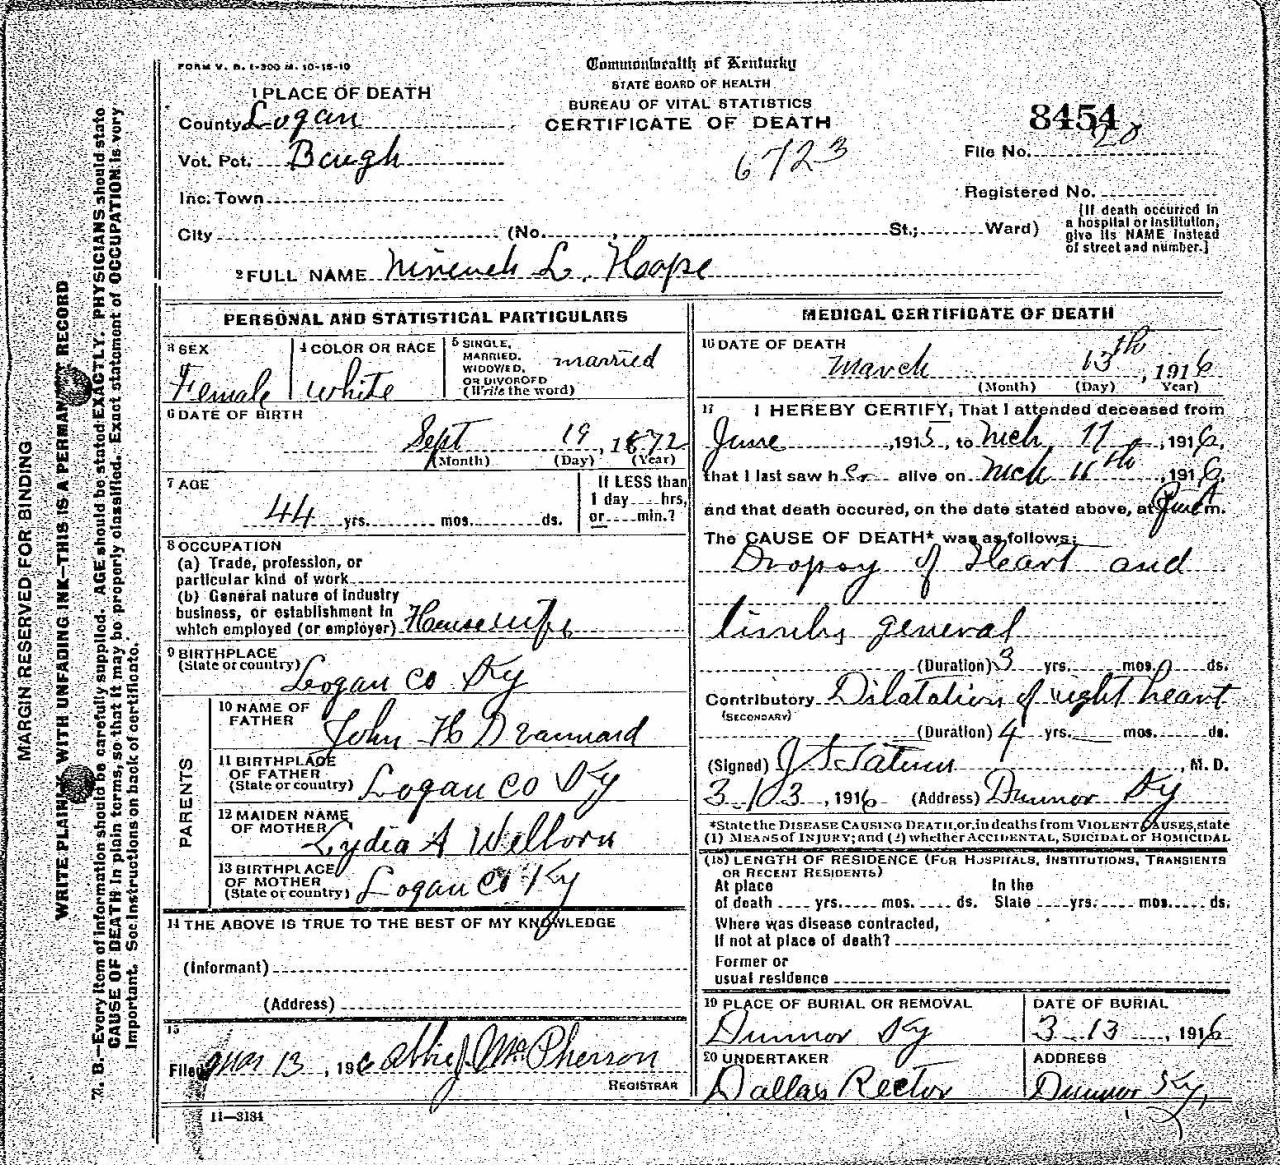 FORM V. S. 1-300 M. 10-15-10
Commonwealth of Kentucky
STATE BOARD OF HEALTH
BUREAU OF VITAL STATISTICS
CERTIFICATE OF DEATH
8454
20
6723
File No.
Registered No.
[If death occurred in
a hospital or institution,
give its NAME instead
of street and number.]
1 PLACE OF DEATH
County Logan
Vot. Pct. Baugh
Inc. Town
City (No. , St.; Ward)
2 FULL NAME L. Hoope
PERSONAL AND STATISTICAL PARTICULARS
3 SEX
Female
4 COLOR OR RACE
White
5 SINGLE,
MARRIED,
WIDOWED,
OR DIVORCED
(Write the word)
married
6 DATE OF BIRTH
Sept 19, 1872
(Month) (Day) (Year)
7 AGE
44 yrs. mos. ds.
If LESS than
1 day hrs,
or min.?
8 OCCUPATION
(a) Trade, profession, or
particular kind of work
(b) General nature of industry
business, or establishment in
which employed (or employer) Housewife
9 BIRTHPLACE
(State or country)
Logan Co Ky
PARENTS
10 NAME OF
FATHER
John H
11 BIRTHPLACE
OF FATHER
(State or country) Logan Co Ky
12 MAIDEN NAME
OF MOTHER
Lydia A Welborn
13 BIRTHPLACE
OF MOTHER
(State or country) Logan Co Ky
14 THE ABOVE IS TRUE TO THE BEST OF MY KNOWLEDGE
(Informant)
(Address)
15
Filed Mar 13, 1916 Abbie J. McPherson
REGISTRAR
11—3184
MEDICAL CERTIFICATE OF DEATH
16 DATE OF DEATH
March 13th, 1916
(Month) (Day) Year)
17 I HEREBY CERTIFY, That I attended deceased from
June, 1915, to Mch 11, 1916,
that I last saw her alive on Mch 11th, 1916,
and that death occured, on the date stated above, at m.
The CAUSE OF DEATH* was as follows:
Dropsy of Heart and
limbs general
(Duration) 3 yrs. mos. ds.
Contributory Dilatation of right heart
(SECONDARY)
(Duration) 4 yrs. mos. ds.
(Signed) J S Tatum, M. D.
, 1916 (Address) Dunmor Ky
*State the DISEASE CAUSING DEATH, or, in deaths from VIOLENT CAUSES, state
(1) MEANS of INJURY; and (2) whether ACCIDENTAL, SUICIDAL or HOMICIDAL
(18) LENGTH OF RESIDENCE (FOR HOSPITALS, INSTITUTIONS, TRANSIENTS
OR RECENT RESIDENTS)
At place
of death yrs. mos. ds.
In the
State yrs. mos. ds.
Where was disease contracted,
If not at place of death?
Former or
usual residence
19 PLACE OF BURIAL OR REMOVAL
Dunmor Ky
DATE OF BURIAL
3-13, 1916
20 UNDERTAKER
Dallas Rector
ADDRESS
Dunmor Ky,
MARGIN RESERVED FOR BINDING
WRITE PLAINLY WITH UNFADING INK—THIS IS A PERMANENT RECORD
N. B.—Every item of information should be carefully supplied. AGE should be stated EXACTLY. PHYSICIANS should state
CAUSE OF DEATH in plain terms, so that it may be properly classified. Exact statement of OCCUPATION is very
important. See instructions on back of certificate.